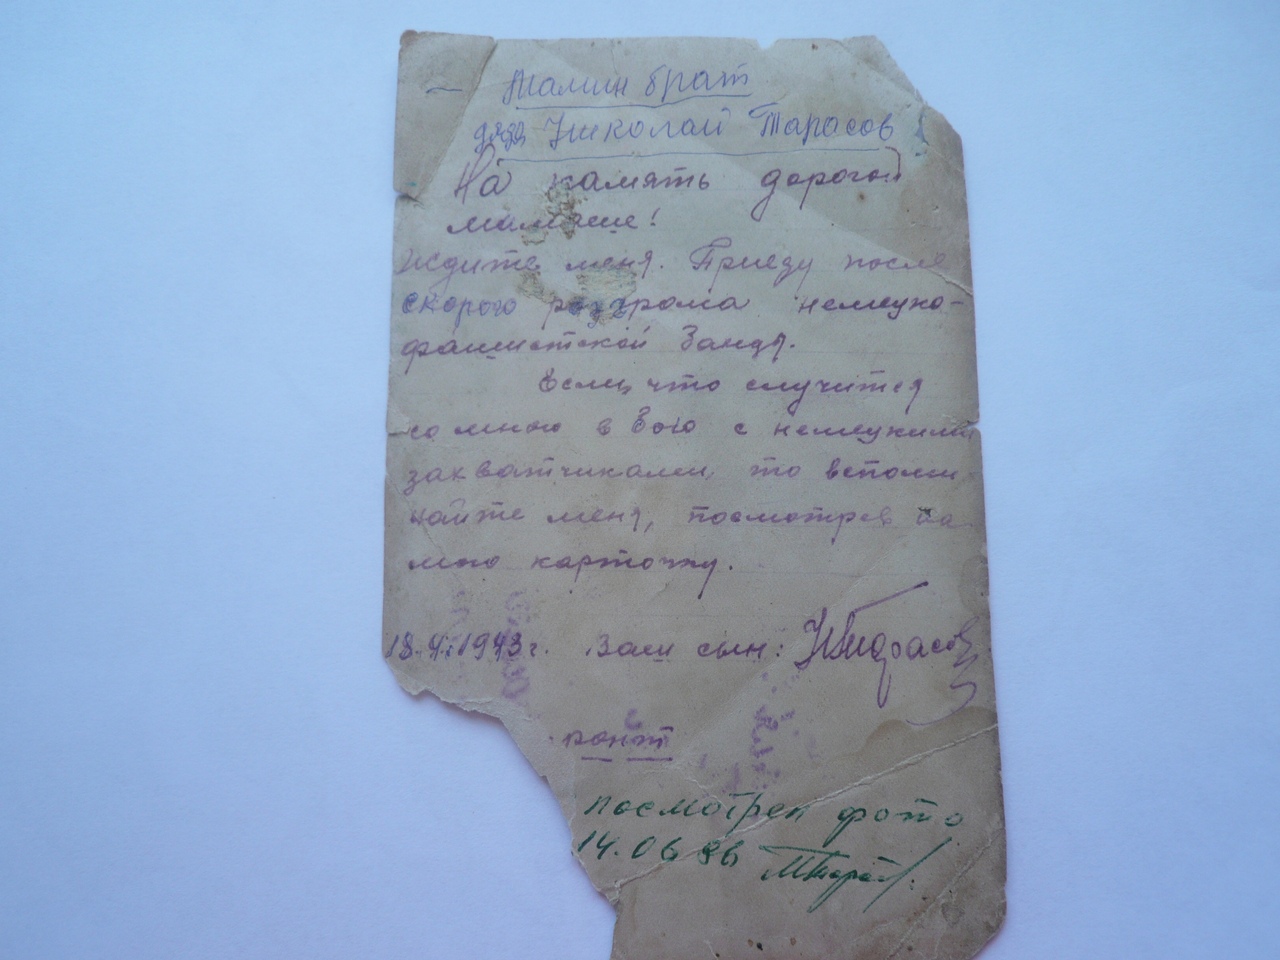 мамин брат
дядя Николай Тарасов
На память дорогой
мамаше!
Ждите меня. Приеду после
скорого разгрома немецко-
фашистской банды.
Если, что случится
со мною в бою с немецкими
захватчиками, то вспоми-
найте меня, посмотрев на
мою карточку.
18. 1943 г. Ваш сын: НТарасов
ронт
посмотрел фото
14.06 86